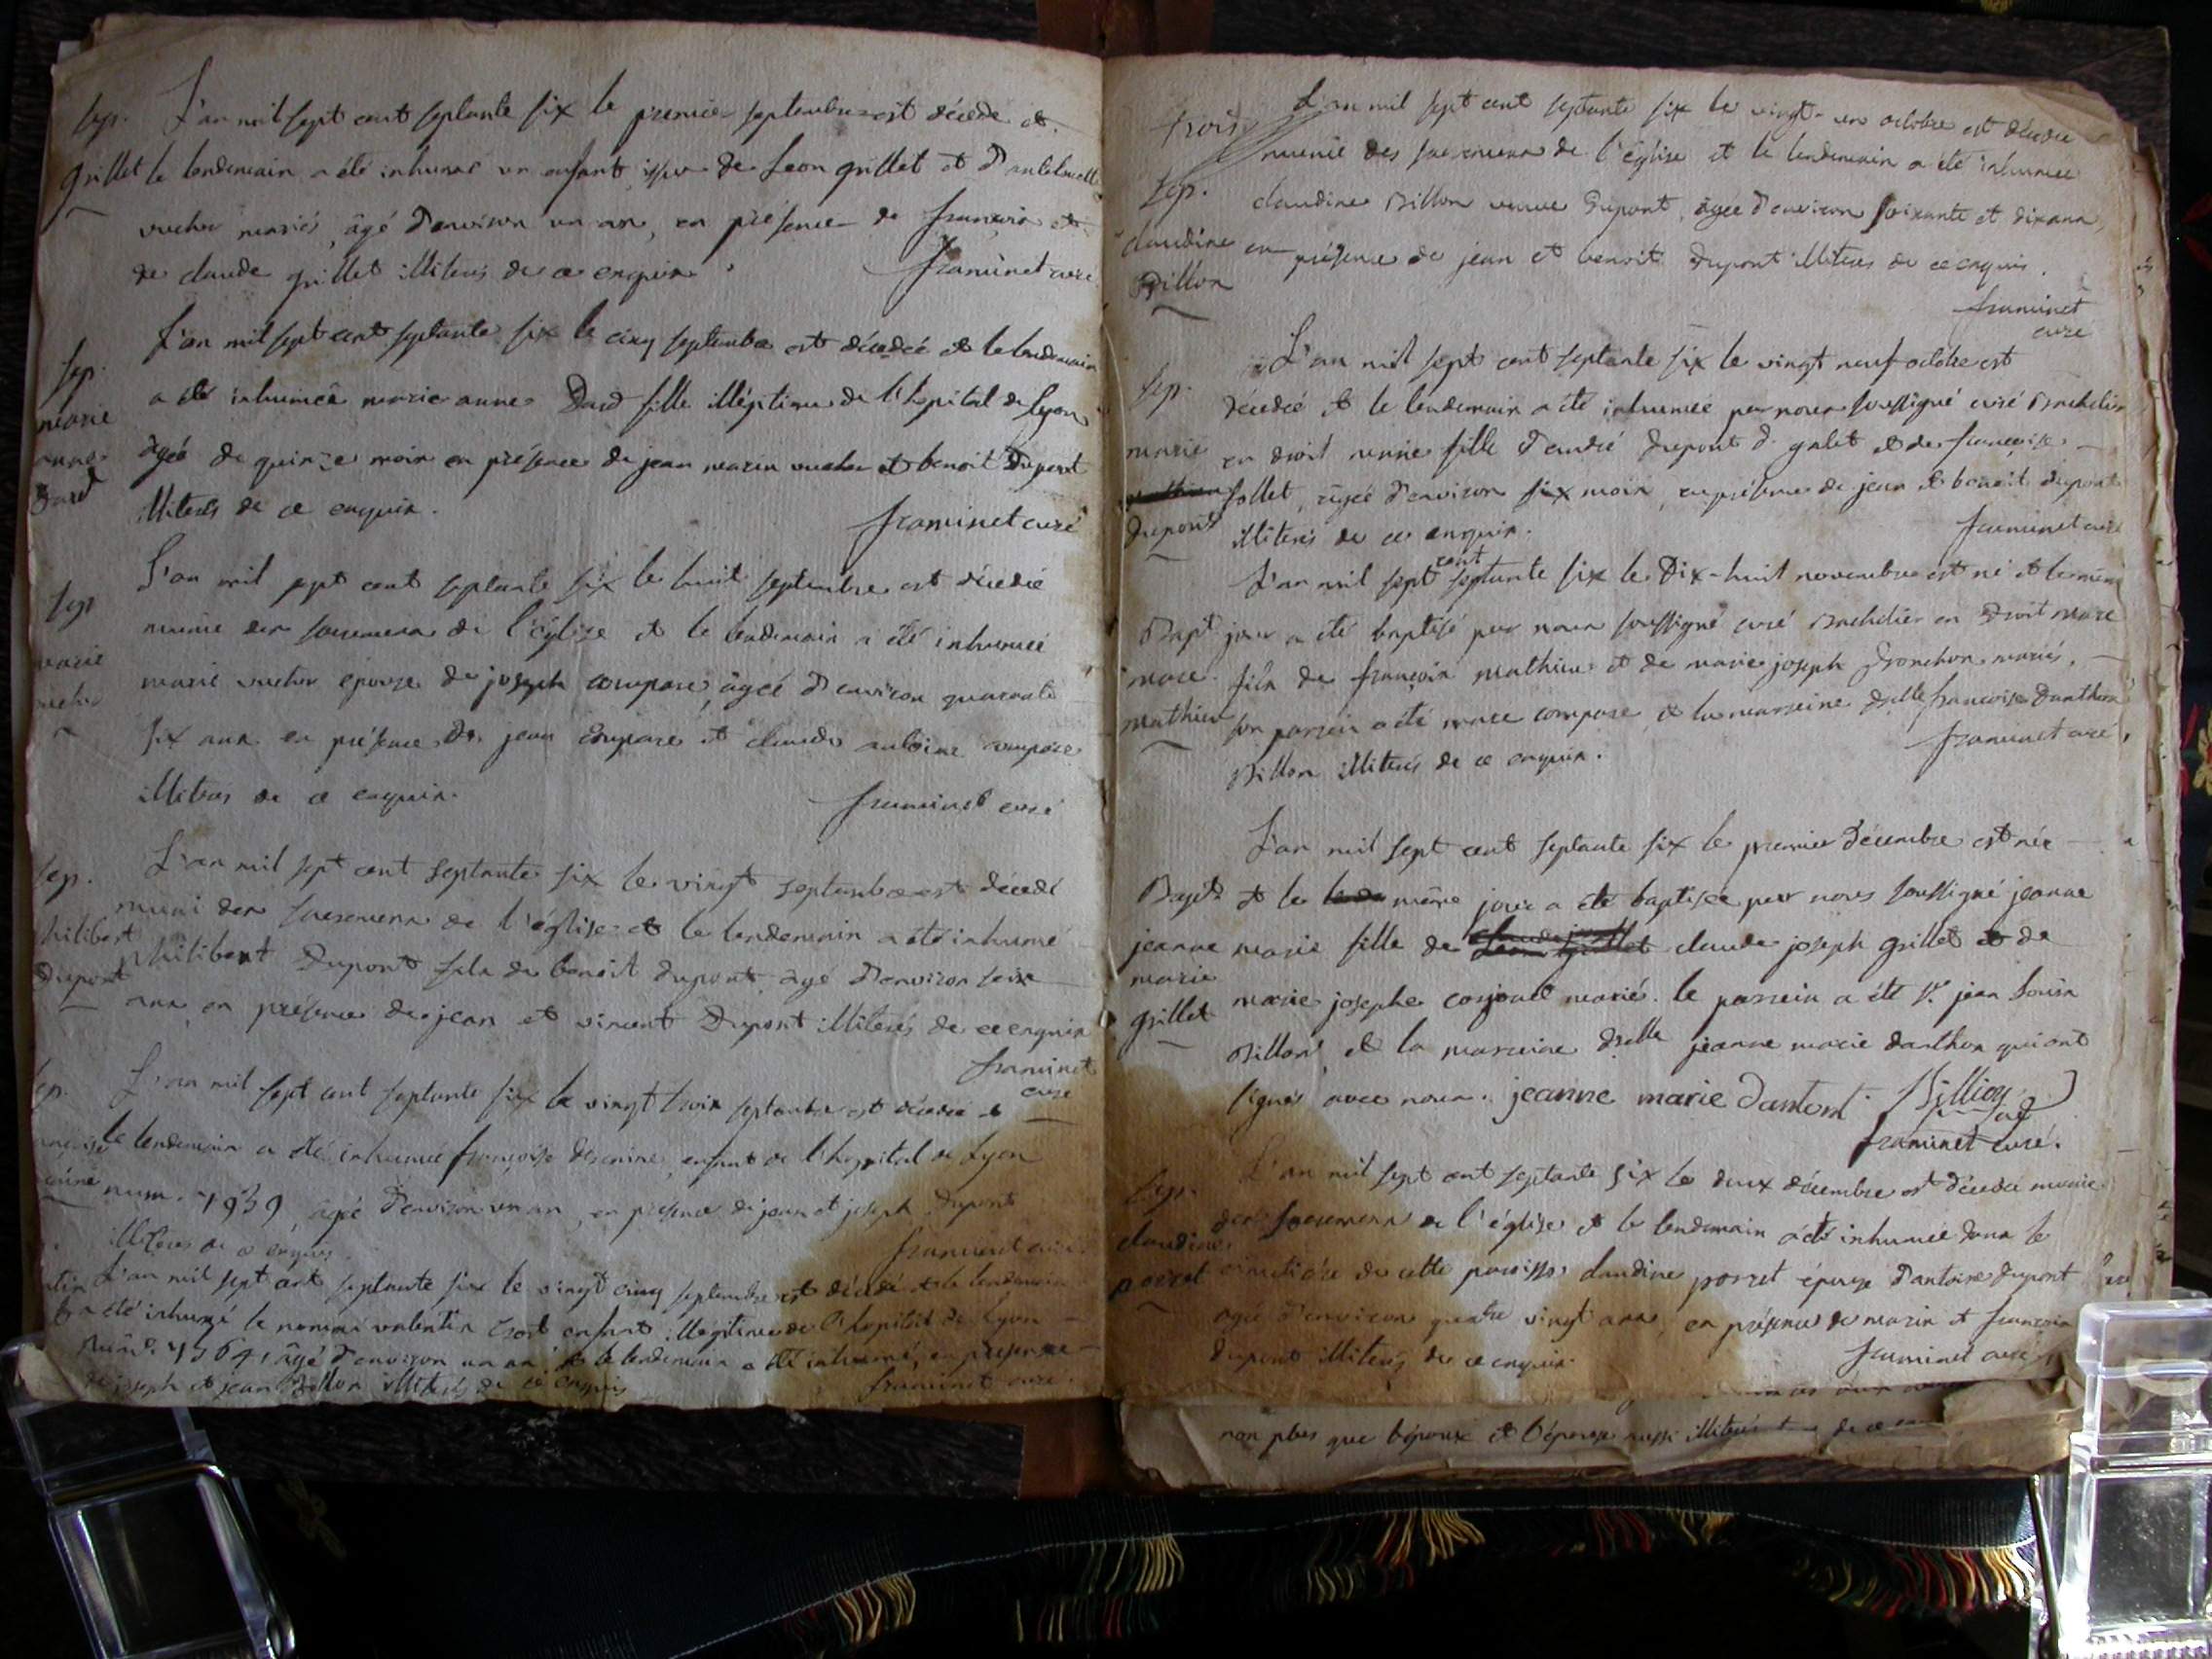 sep.
grillet
L'an mil sept cent septante six le premier septembre est décédé et
le lendemain a été inhumé un enfant issu de Leon grillet et d'
vucher mariés, âgé d'environ un an, en présence de françois et
de claude grillet illiterés de ce enquis.
framinet curé
sep.
marie
anne
Dard
L'an mil sept cent septante six le cinq septembre est décédée et le lendemain
a été inhumée marie anne Dard fille illégitime de l'hopital de lyon
âgée de quinze mois en présence de jean marin vucher et benoit Dupont
illiterés de ce enquis.
framinet curé
sep
marie
vucher
L'an mil sept cent septante six le huit septembre est décédée
munie des sacremens de l'église et le lendemain a été inhumée
marie vucher epouse de joseph compare, âgée d'environ quarante
six ans en présence de jean compare et claude antoine compare
illiterés de ce enquis.
framinet curé
sep.
philibert
Dupont
L'an mil sept cent septante six le vingt septembre est décédé
muni des sacremens de l'église et le lendemain a été inhumé
philibert Dupont fils de benoit dupont, âgé d'environ seize
ans, en présence de jean et vincent Dupont illiterés de ce enquis
framinet
curé
sep.
L'an mil sept cent septante six le vingt trois septembre est décédée et
le lendemain a été inhumée françoise enfant de l'hopital de Lyon
num. 1939, âgée d'environ un an, en présence de jean et joseph Dupont
illiterés de ce enquis.
framinet curé
L'an mil sept cent septante six le vingt cinq septembre est décédé et le lendemain
a été inhumé le nommé valentin enfant illégitime de l'hopital de Lyon
num. 4564, âgé d'environ un an, et le lendemain a été inhumé, en présence
de joseph et jean Billon illiterés de ce enquis
framinet curé.
trois
sep.
claudine
Billon
L'an mil sept cent septante six le vingt-un octobre est décédée
munie des sacremens de l'église et le lendemain a été inhumée
claudine Billon veuve Dupont, âgée d'environ soixante et dix ans,
en présence de jean et benoit Dupont illiterés de ce enquis.
framinet
curé
sep.
marie
dupont
L'an mil sept cent septante six le vingt neuf octobre est
décédée et le lendemain a été inhumée par nous soussigné curé Bachelier
en droit marie fille d'andré Dupont d. galet et de françoise
follet, âgée d'environ six mois, en présence de jean et benoit dupont
illiterés de ce enquis.
framinet curé
Bapt.
marc
mathieu
L'an mil sept cent septante six le Dix-huit novembre est né et le même
jour a été baptisé par nous soussigné curé Bachelier en Droit marc
fils de françois mathieu et de marie joseph mariés,
son parrein a été marc compare et la marreine dselle françoise Danthon
Billon illiterés de ce enquis.
framinet curé,
Bapt.
jeanne
marie
grillet
L'an mil sept cent septante six le premier décembre est née
et le même jour a été baptisée par nous soussigné jeanne
marie fille de claude joseph grillet et de
marie josephe conjouet mariés. le parrein a été sr. jean Louis
Billon, et la marreine dselle jeanne marie danthon qui ont
signés avec nous. jeanne marie Dantont Billion
framinet curé.
sep.
claudine
porret
L'an mil sept cent septante six le deux décembre est décédée munie
des sacremens de l'église et le lendemain a été inhumée dans le
cimetiére de cette paroisse claudine porret épouse d'antoine dupont
agée d'environ quatre vingt ans, en présence de marin et françois
dupont illiterés de ce enquis.
framinet curé
non plus que l'époux et l'épouse aussi illiterés de ce